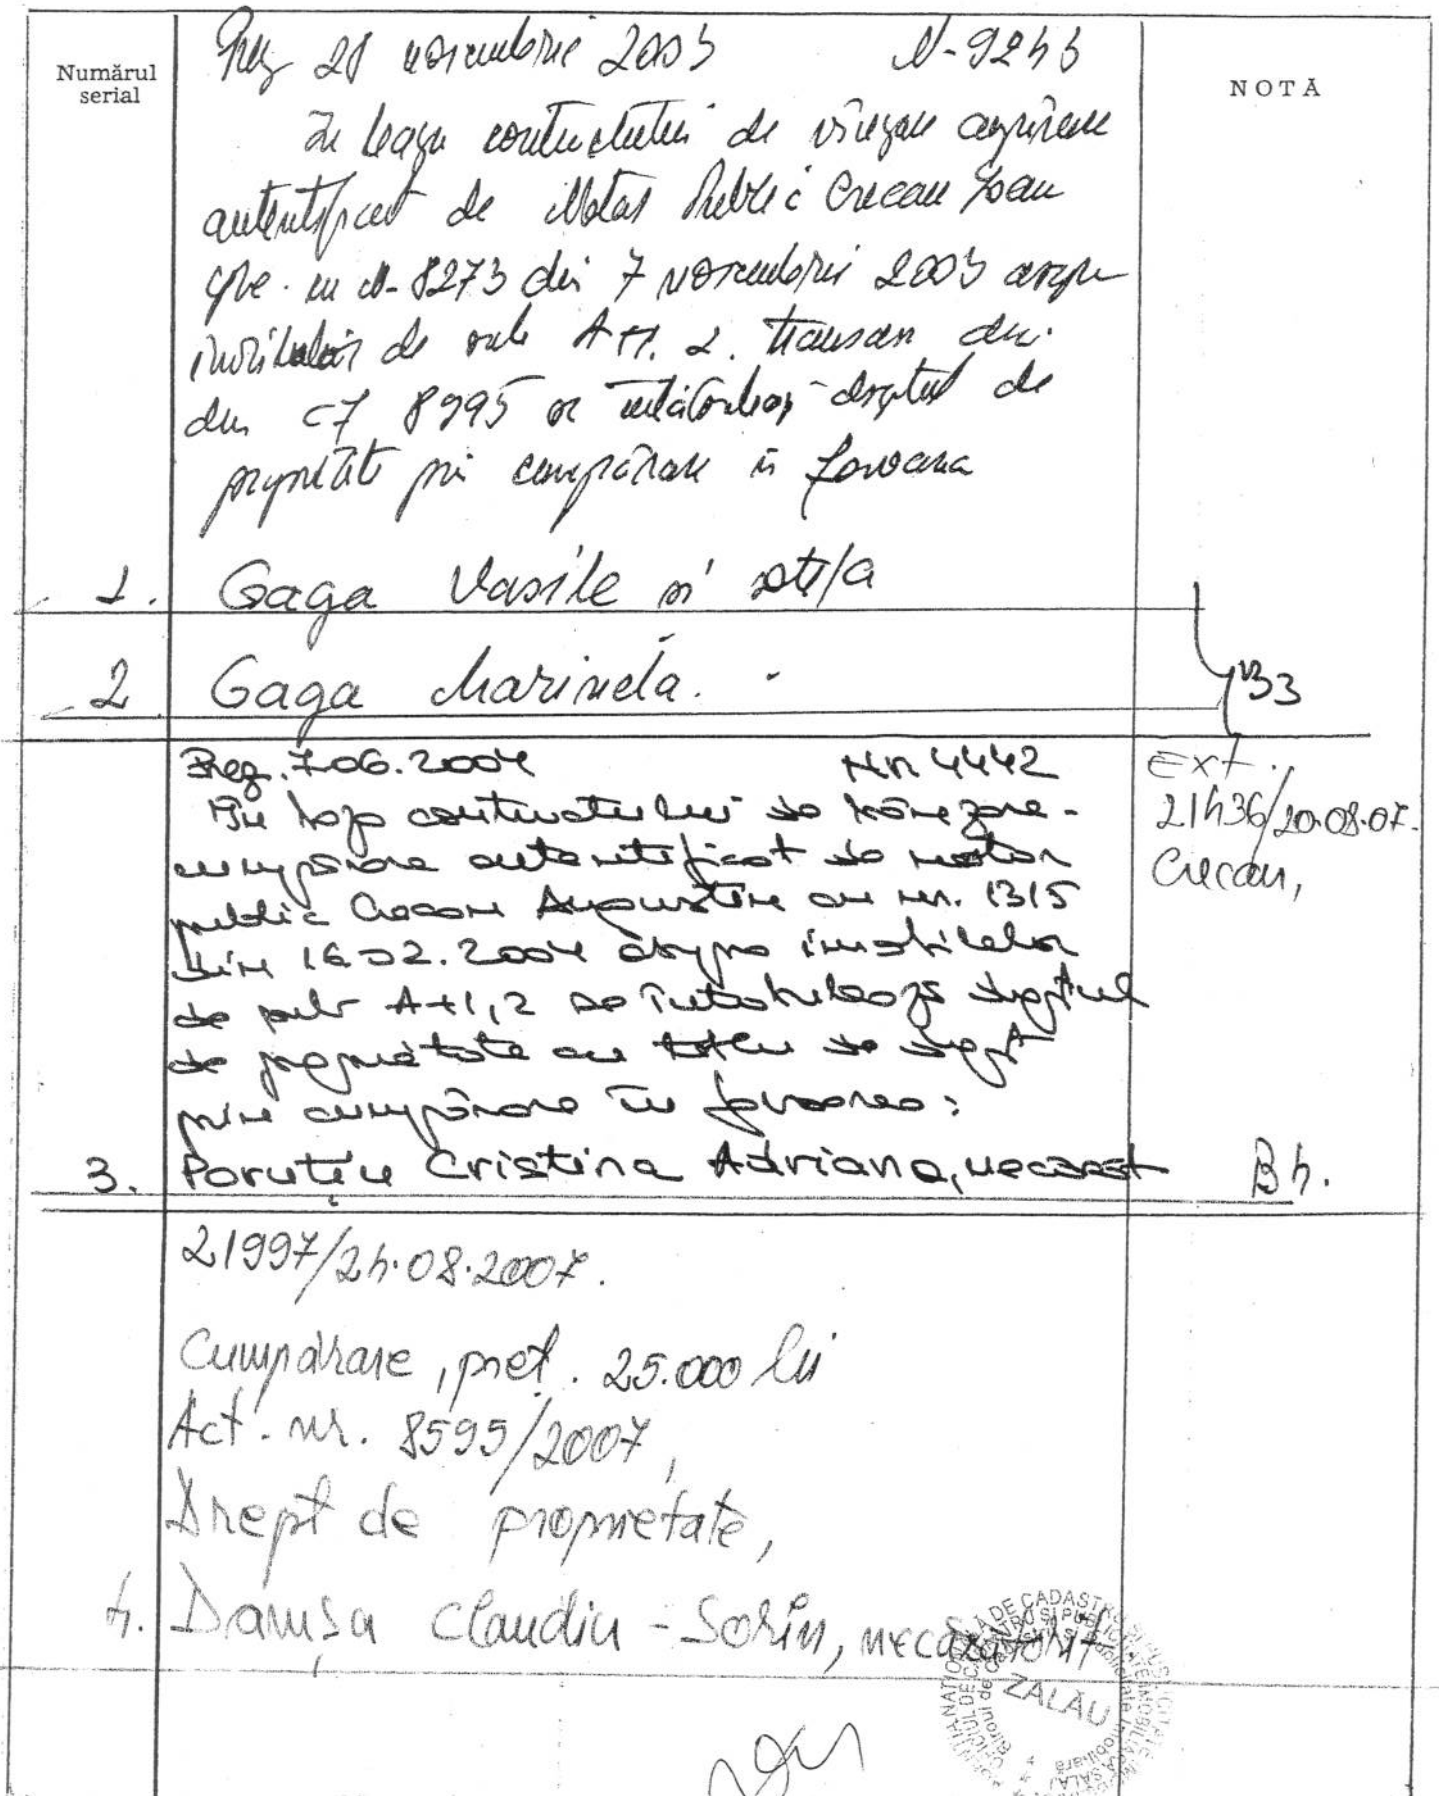 Numărul
serial
NOTĂ
28 noiembrie 2003 N-9243
În baza contractului de vînzare cumpărare
autentificat de Notar Public Crecan Ioan
sub nr 8273 din 7 noiembrie 2003 asupra
imobilelor de sub A+1. 2. transcri din
din CF 8995 se intabulează dreptul de
proprietate prin cumpărare în favoarea
1. Gaga Vasile și soția
2 Gaga Marinela.
B3
Preg. 7.06.2004 Nr 4442
În baza contractului de vânzare-
cumpărare autentificat de notar
public Crecan Augustin cu nr. 1315
din 16.02.2004 asupra imobilelor
de sub A+1,2 se întabulează dreptul
de proprietate cu titlu de drept
prin cumpărare în favoarea:
3. Poruțiu Cristina Adriana, necăsăt
Ext.
21436/20.08.07.
Crecan,
B4.
21997/24.08.2007.
Cumpărare, preț. 25.000 lei
Act. nr. 8595/2007,
Drept de proprietate,
4. Danișa Claudiu-Sorin, necăsătorit
ZALĂU